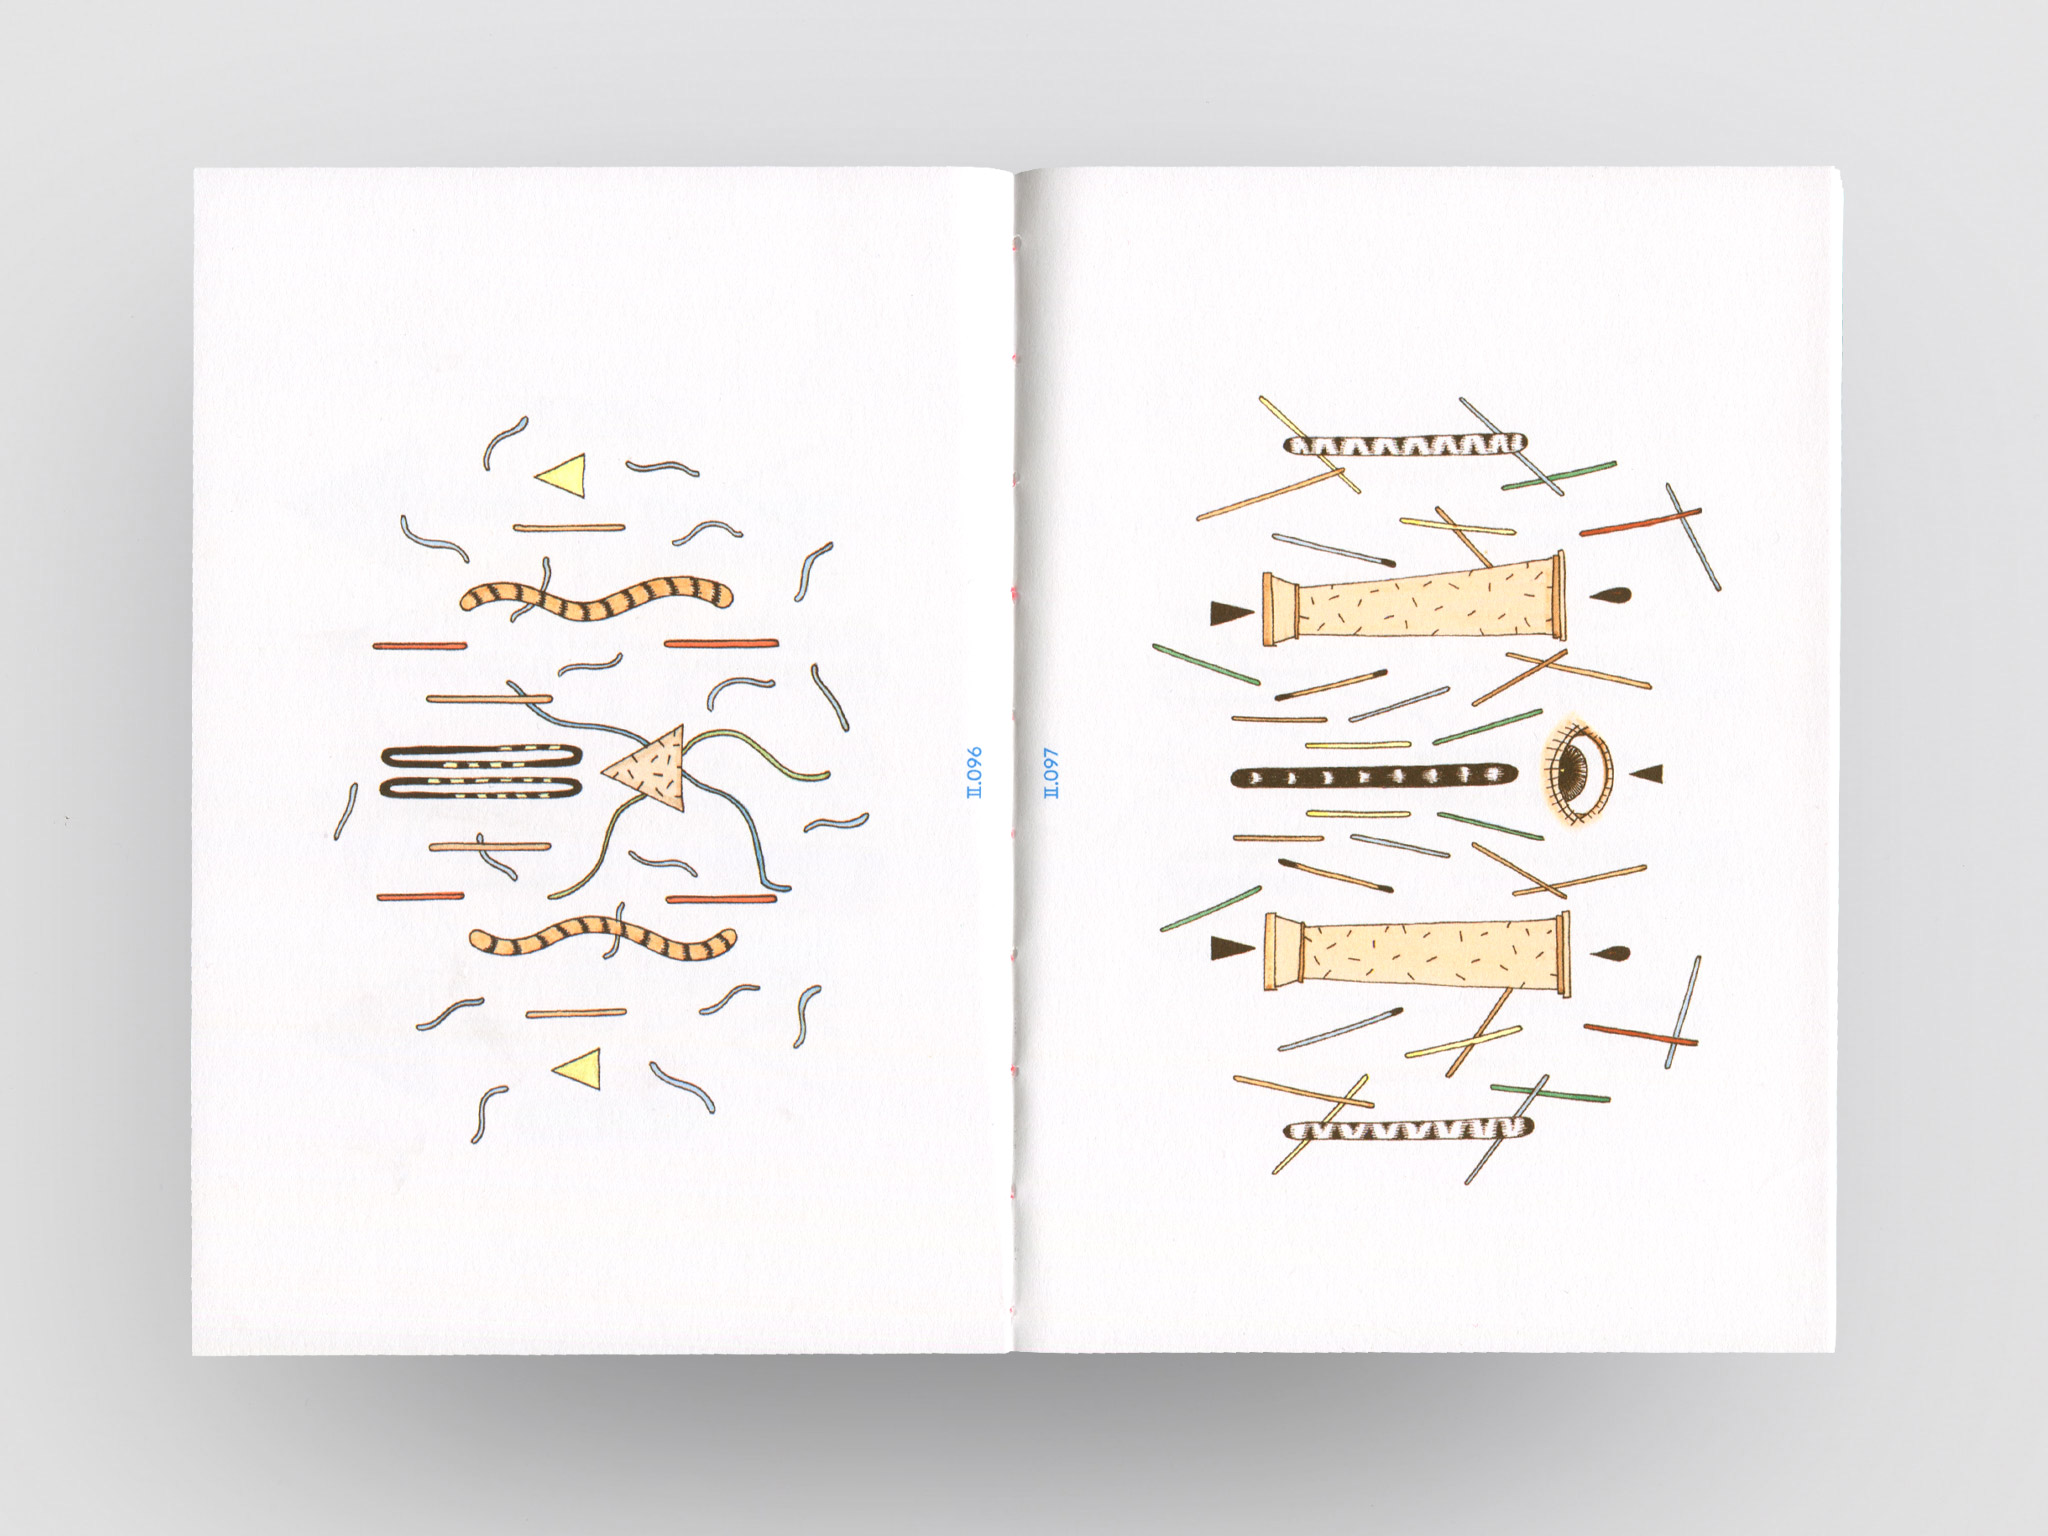 II.096
II.097